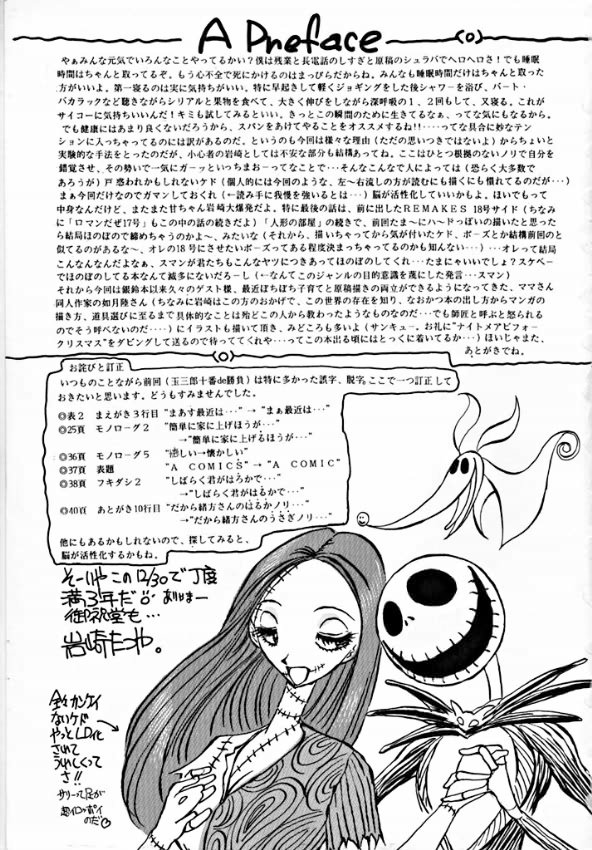 A Preface
やぁみんな元気でいろんなことやってるかい？僕は残業と長電話のしすぎと原稿のシュラバでヘロヘロさ！でも睡眠
時間はちゃんと取ってるぞ。もう心不全で死にかけるのはまっぴらだからね。みんなも睡眠時間だけはちゃんと取った
方がいいよ。第一寝るのは実に気持ちがいい。特に早起きして軽くジョギングをした後シャワーを浴び、バート・
バカラックなど聴きながらシリアルと果物を食べて、大きく伸びをしながら深呼吸の１、２回もして、又寝る。これが
サイコーに気持ちいいんだ！キミも試してみるといい。きっとこの瞬間のために生きてるなぁ、って気にもなるから。
でも健康にはあまり良くないだろうから、スパンをあけてやることをオススメするね!!‥‥って具合に妙なテン
ションに入っちゃってるのには訳があるのだ。というのも今回は様々な理由（ただの思いつきではないよ）からちょいと
実験的な手法をとったのだが、小心者の岩崎としては不安な部分も結構あってね。ここはひとつ根拠のないノリで自分を
錯覚させ、その勢いで一気にガーッといっちまおーってなことで‥‥そんなこんなで人によっては（恐らく大多数で
あろうが）戸惑われかもしれないケド（個人的には今回のような、左〜右流しの方が読むにも描くにも慣れてるのだが‥‥）
まぁ今回だけなのでガマンしておくれ（←読み手に我慢を強いるとは‥‥）脳が活性化していいかもよ。ほいでもって
中身なんだけど、またまた甘ちゃん岩崎大爆発だよ。特に最後の話は、前に出したＲＥＭＡＫＥＳ 18号サイド（ちなみ
に「ロマンだぜ17号」もこの中の話の続きだよ）「人形の部屋」の続きで、前回たま〜にハードっぽいの描いたと思った
ら結局ほのぼので締めちゃうのかよ〜、みたいな（それから、描いちゃってから気が付いたケド、ポーズとか結構前回のと
似てるのがあるな〜、オレの18号にさせたいポーズってある程度決まっちゃってるのかも知んない）‥‥‥オレって結局
こんなんなんだよなぁ、スマンが君たちもこんなヤツにつきあってほのぼのしてくれ‥‥たまにゃいいでしょ？スケベー
でほのぼのしてる本なんて滅多にないだろーし（←なんてこのジャンルの目的意識を蔑にした発言‥‥スマン）
それから今回は銀鈴本以来久々のゲスト様、最近ぼちぼち子育てと原稿描きの両立ができるようになってきた、ママさん
同人作家の如月陸さん（ちなみに岩崎はこの方のおかげで、この世界の存在を知り、なおかつ本の出し方からマンガの
描き方、道具選びに至るまで具体的なことは殆どこの人から教わったようなものなのだ‥‥でも師匠と呼ぶと怒られる
のでそう呼べないのだ‥‥）にイラストも描いて頂き、みどころも多いよ（サンキュー。お礼に"ナイトメアビフォー
クリスマス"をダビングして送るので待っててくれや‥‥ってこの本出る頃にはとっくに着いてるか‥‥）ほいじゃまた、
あとがきでね。
お詫びと訂正
いつものことながら前回（玉三郎十番de勝負）は特に多かった誤字、脱字。ここで一つ訂正して
おきたいと思います。どうもすみませんでした。
◎表２ まえがき３行目 "まあす最近は‥‥" → "まぁ最近は‥‥"
◎25頁 モノローグ２ "簡単に家に上げほうが‥‥"
→"簡単に家に上げるほうが‥‥"
◎36頁 モノローグ５ →懐かしい"
◎37頁 表題 "A COMICS" → "A COMIC"
◎38頁 フキダシ２ "しばらく君がはろかで‥‥"
→"しばらく君がはるかで‥‥"
◎40頁 あとがき10行目 "だから緒方さんのはるかノリ‥‥"
→"だから緒方さんのうさぎノリ‥‥"
他にもあるかもしれないので、探してみると、
脳が活性化するかもね。
そーいや この12/30で丁度
満3年だ
御祝堂も…
岩崎たつや。
全々カンケイ
ないケド
やっとLD化
されて
うれしくって
さ!!
サリーって足が
のだ♡